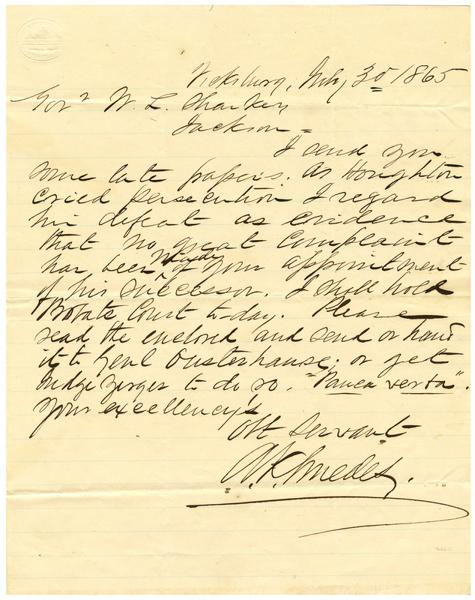 Vicksburg, July 30 1865
Govr W. L. Sharkey
Jackson =
I send you
some late papers. As Houghton
cried persecution I regard
his defeat as evidence
that no great complaint
has been made of your appointment
of his successor. I shall hold
Probate Court to-day. Please
read the enclosed and send or hand
it to Genl Ousterhause; or get
Judge Yerger to do so. "Pauca verba"
Your excellency's
Obt Servant
Smedes.